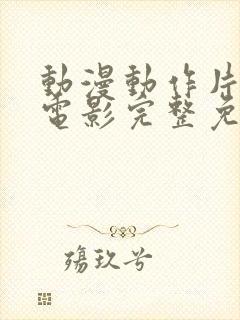 動漫動作片
電影完整免
殤玖兮